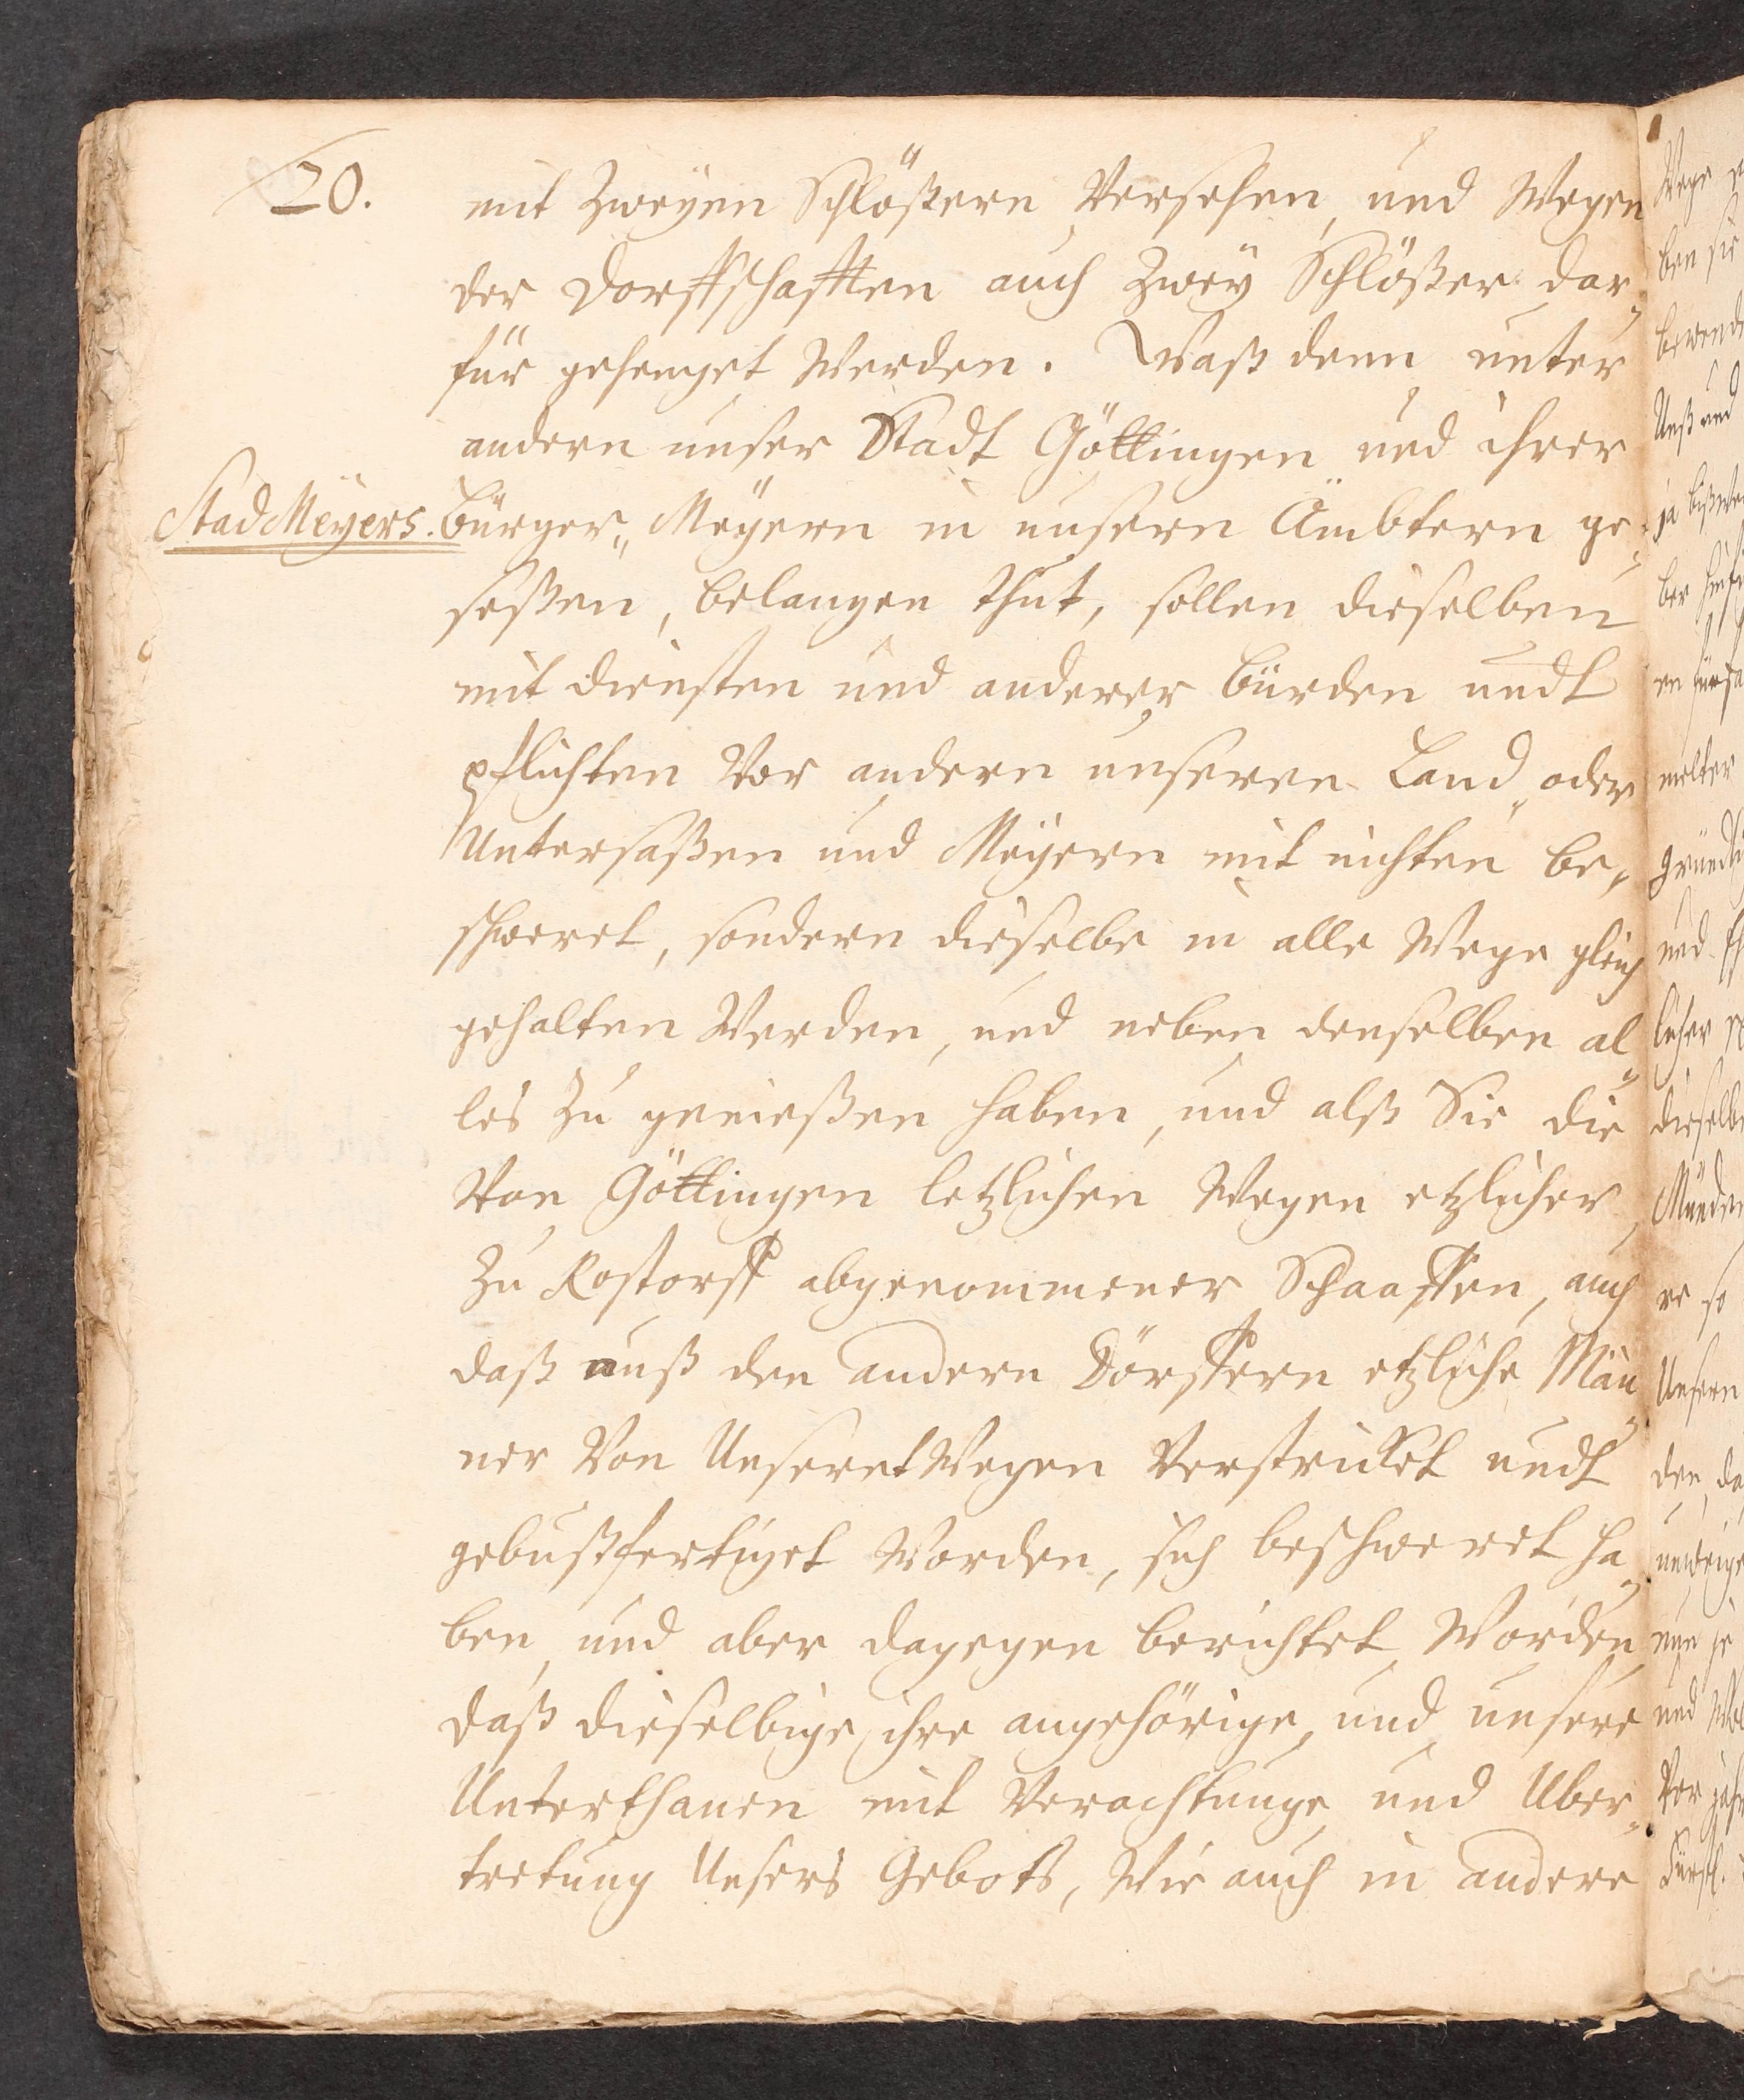 20.
mit Zweyen Schlößern Versehen, und Wegen
der Dorffschafften auch Zwey Schlößer dar„
für gehenget Werden. Waß denn unter
andern unser Stadt Göttingen und ihrer
Stad Meyers.
Bürger„ Meyern in unsern Ämbtern ge„
seßen, belangen thut, sollen dieselben
mit diensten und anderer bürden undt
pflichten Vor andern unseren Land„ oder
Untersaßen und Meyern mit nichten be„
schweret, sondern dieselbe in alle Wege gleich
gehalten Werden, und neben denselben al„
les Zu genießen haben, und alß Sie die
Von Göttingen letzlichen Wegen etzlicher
Zu Rostorff abgenommener Schaaffen, auch
daß auß den andern Dörffern etzliche Män„
ner Von UnseretWegen Verstricket undt
gebußfertiget Worden, sich beschweret ha„
ben, und aber dagegen berichtet Worden,
daß dieselbige ihre angehörige, und unsere
Unterthanen mit Verachtunge und Uber„
tretung Unsers Gebots, Wie auch in andere
Wege
ben sie
Unß und
melter
und
licher
re so
Unsern
nun je
und
Vor
Fürstl.